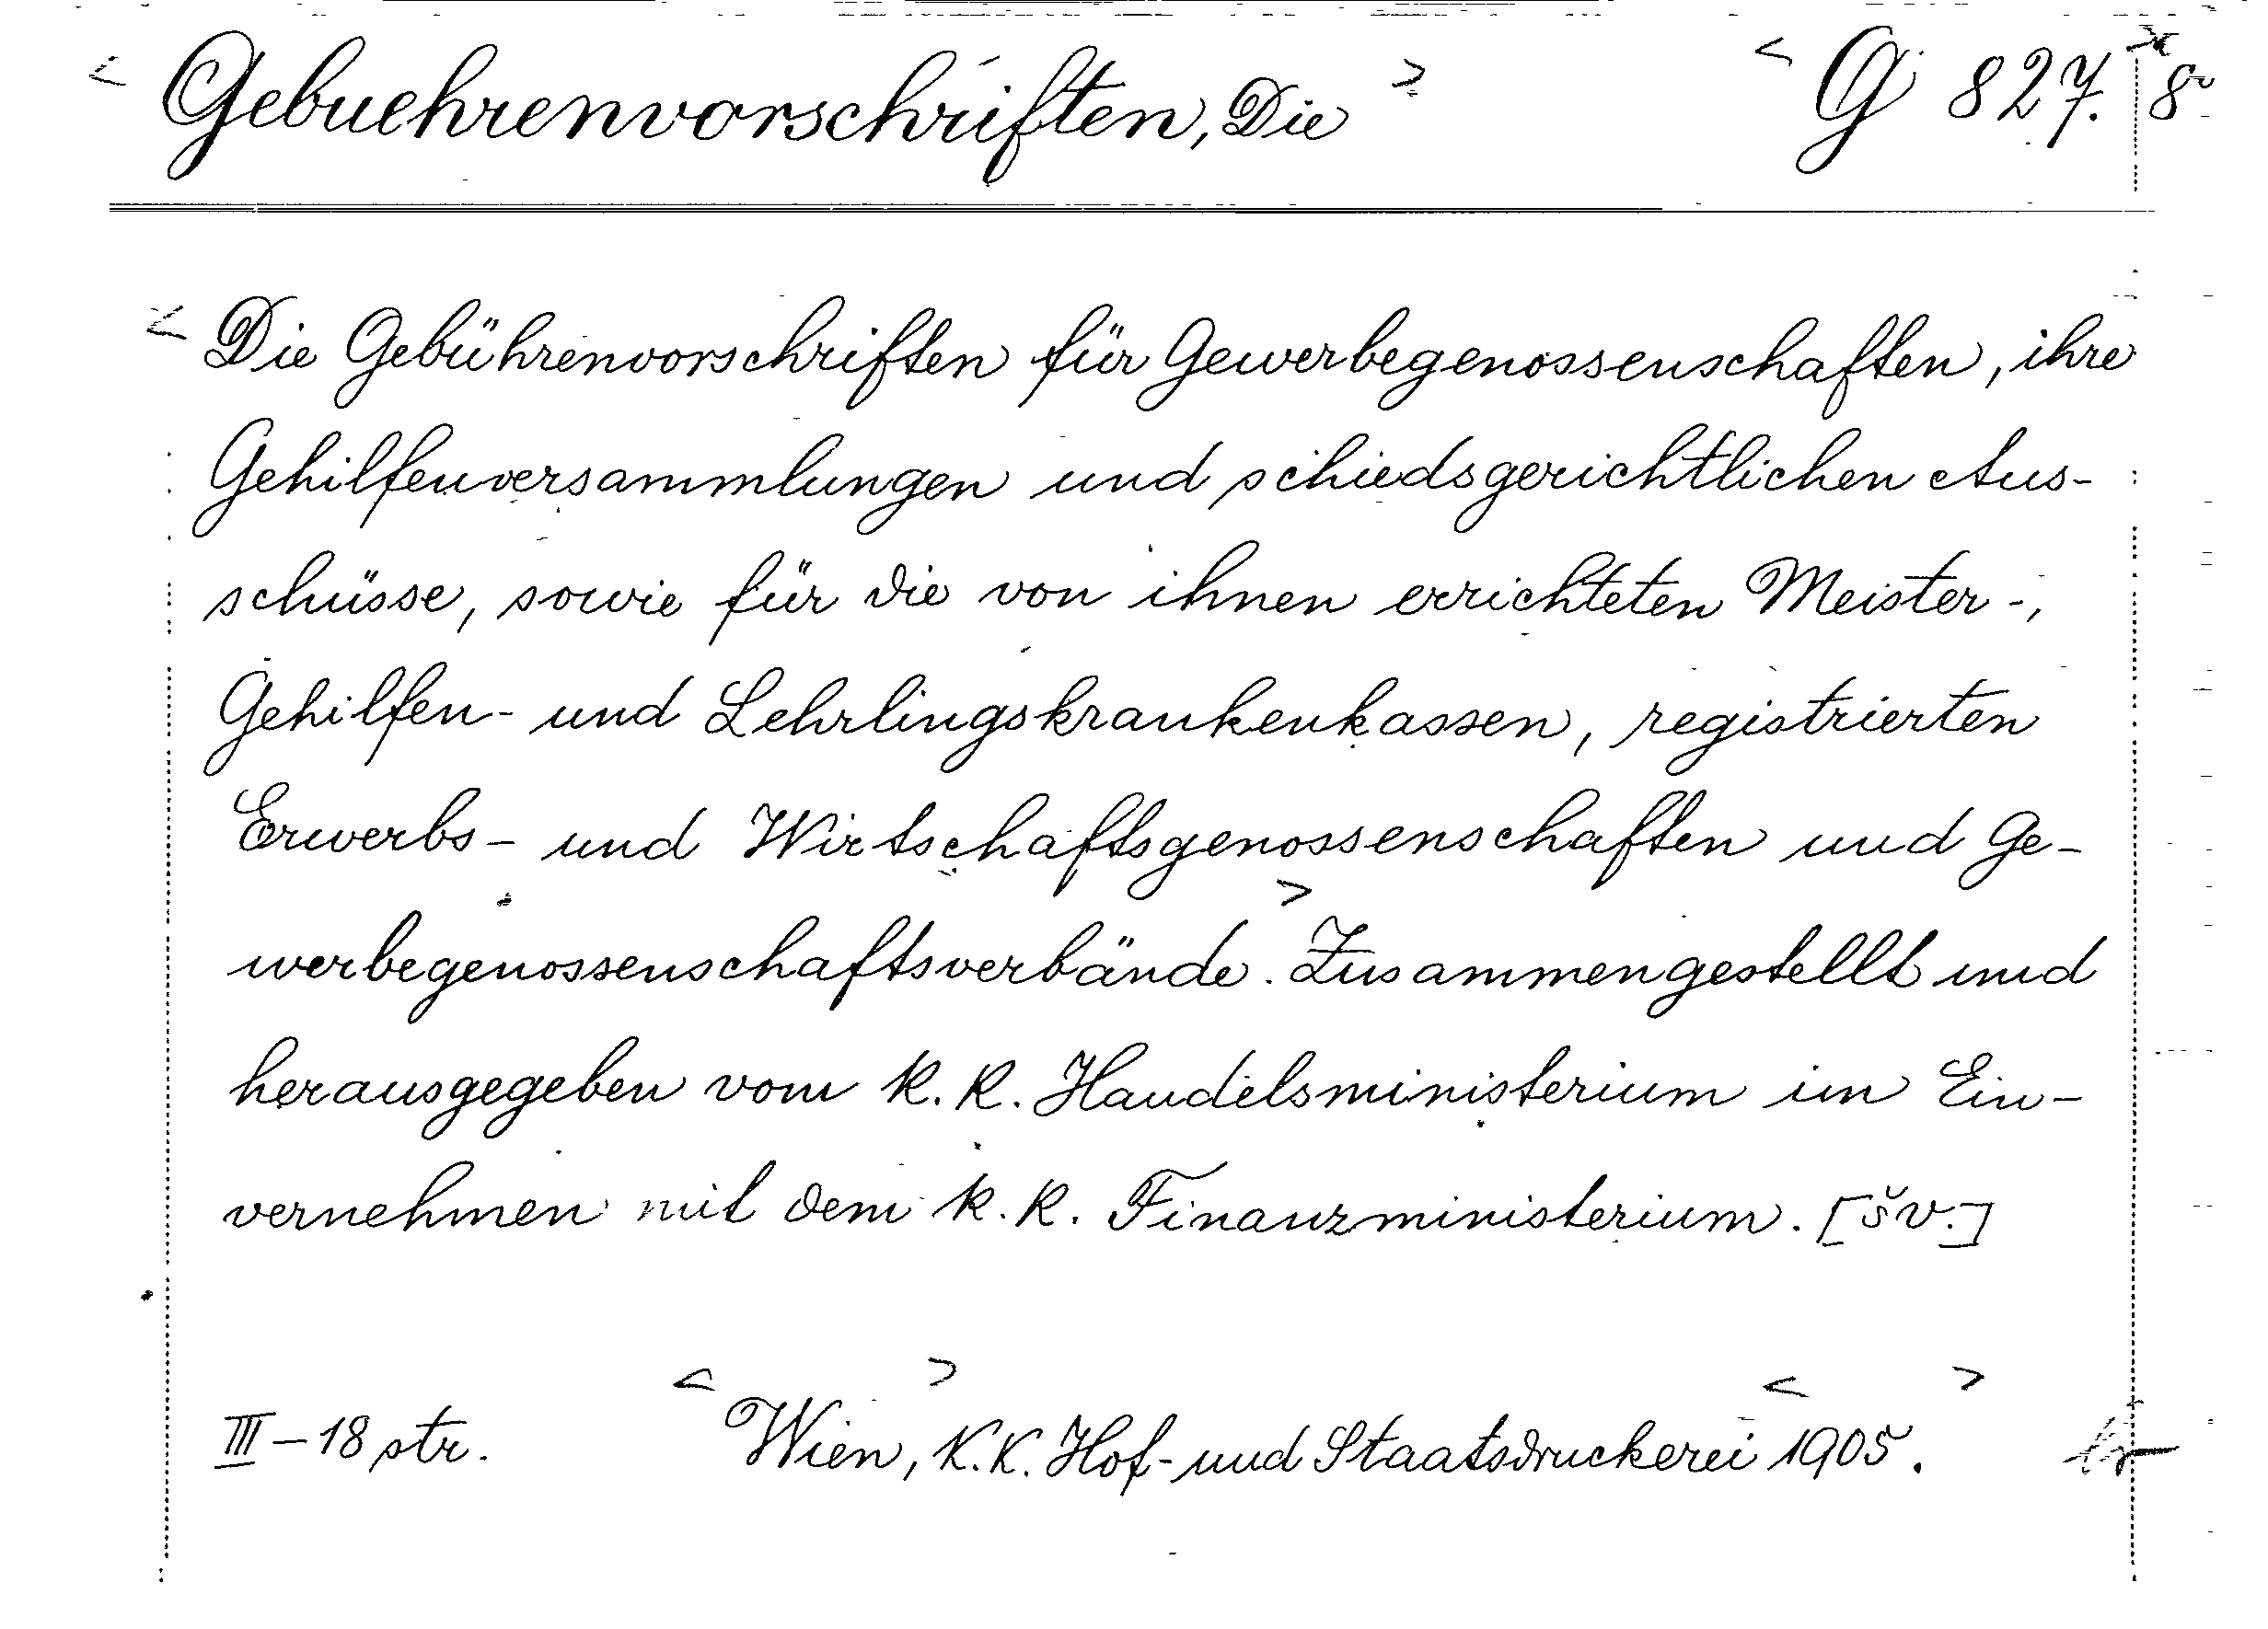 < Gebuehrenvorschriften, Die > < G 827. 8°
< Die Gebührenvorschriften für Gewerbegenossenschaften, ihre
Gehilfenversammlungen und schiedsgerichtlichen Aus-
schüsse, sowie für die von ihnen errichteten Meister-,
Gehilfen- und Lehrlingskrankenkassen, registrierten
Erwerbs- und Wirtschaftsgenossenschaften und Ge-
werbegenossenschaftsverbände. > Zusammengestellt und
herausgegeben vom k. k. Handelsministerium im Ein-
vernehmen mit dem k. k. Finanzministerium. [šv.]
III - 18 str. < Wien, > K. K. Hof- und Staatsdruckerei < 1905. >